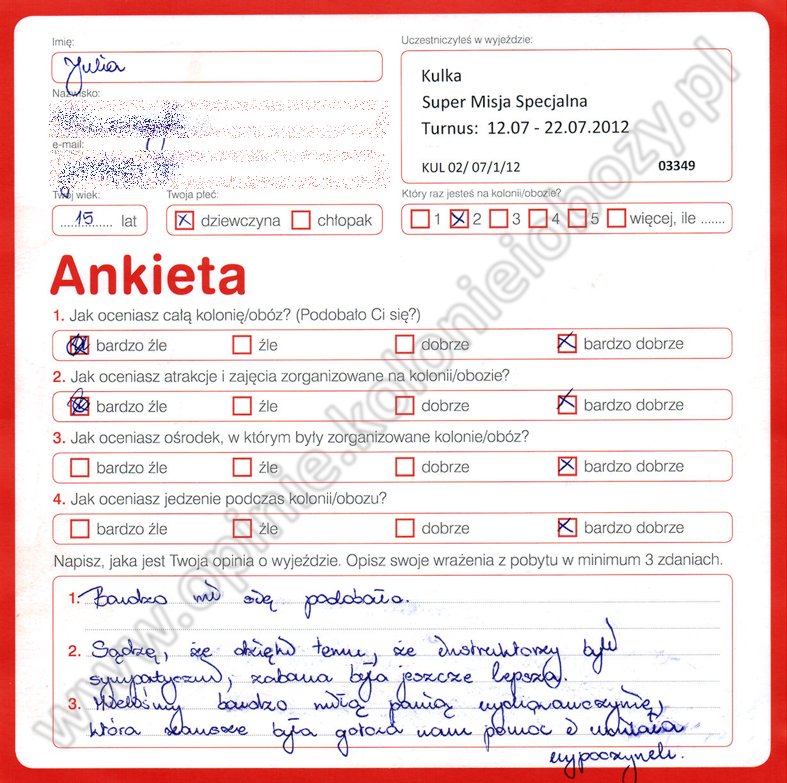 Imię:
Julia
Nazwisko:
e-mail:
Twój wiek:
15 lat
Twoja płeć:
dziewczyna chłopak
Uczestniczyłeś w wyjeździe:
Kulka
Super Misja Specjalna
Turnus: 12.07 - 22.07.2012
KUL 02/ 07/1/12 03349
Który raz jesteś na kolonii/obozie?
1 2 3 4 5 więcej, ile .......
Ankieta
1. Jak oceniasz całą kolonię/obóz? (Podobało Ci się?)
bardzo źle źle dobrze bardzo dobrze
2. Jak oceniasz atrakcje i zajęcia zorganizowane na kolonii/obozie?
bardzo źle źle dobrze bardzo dobrze
3. Jak oceniasz ośrodek, w którym były zorganizowane kolonie/obóz?
bardzo źle źle dobrze bardzo dobrze
4. Jak oceniasz jedzenie podczas kolonii/obozu?
bardzo źle źle dobrze bardzo dobrze
Napisz, jaka jest Twoja opinia o wyjeździe. Opisz swoje wrażenia z pobytu w minimum 3 zdaniach.
1. Bardzo mi się podobało.
2. Sądzę, że dzięki temu, że instruktorzy byli
sympatyczni, zabawa była jeszcze lepsza.
3. Mieliśmy bardzo miłą panią wychowawczynię,
która zawsze była gotowa nam pomoc i
wypoczynek.
www.opinie.kolonieiobozy.pl